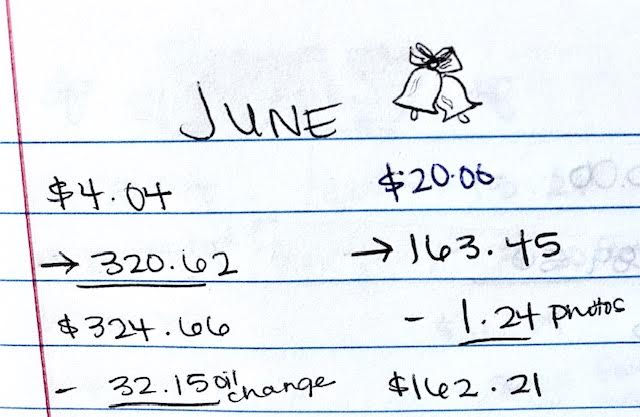 JUNE
$4.04
→ 320.62
$324.66
- 32.15 oil change
$20.06
→ 163.45
- 1.24 photos
$162.21